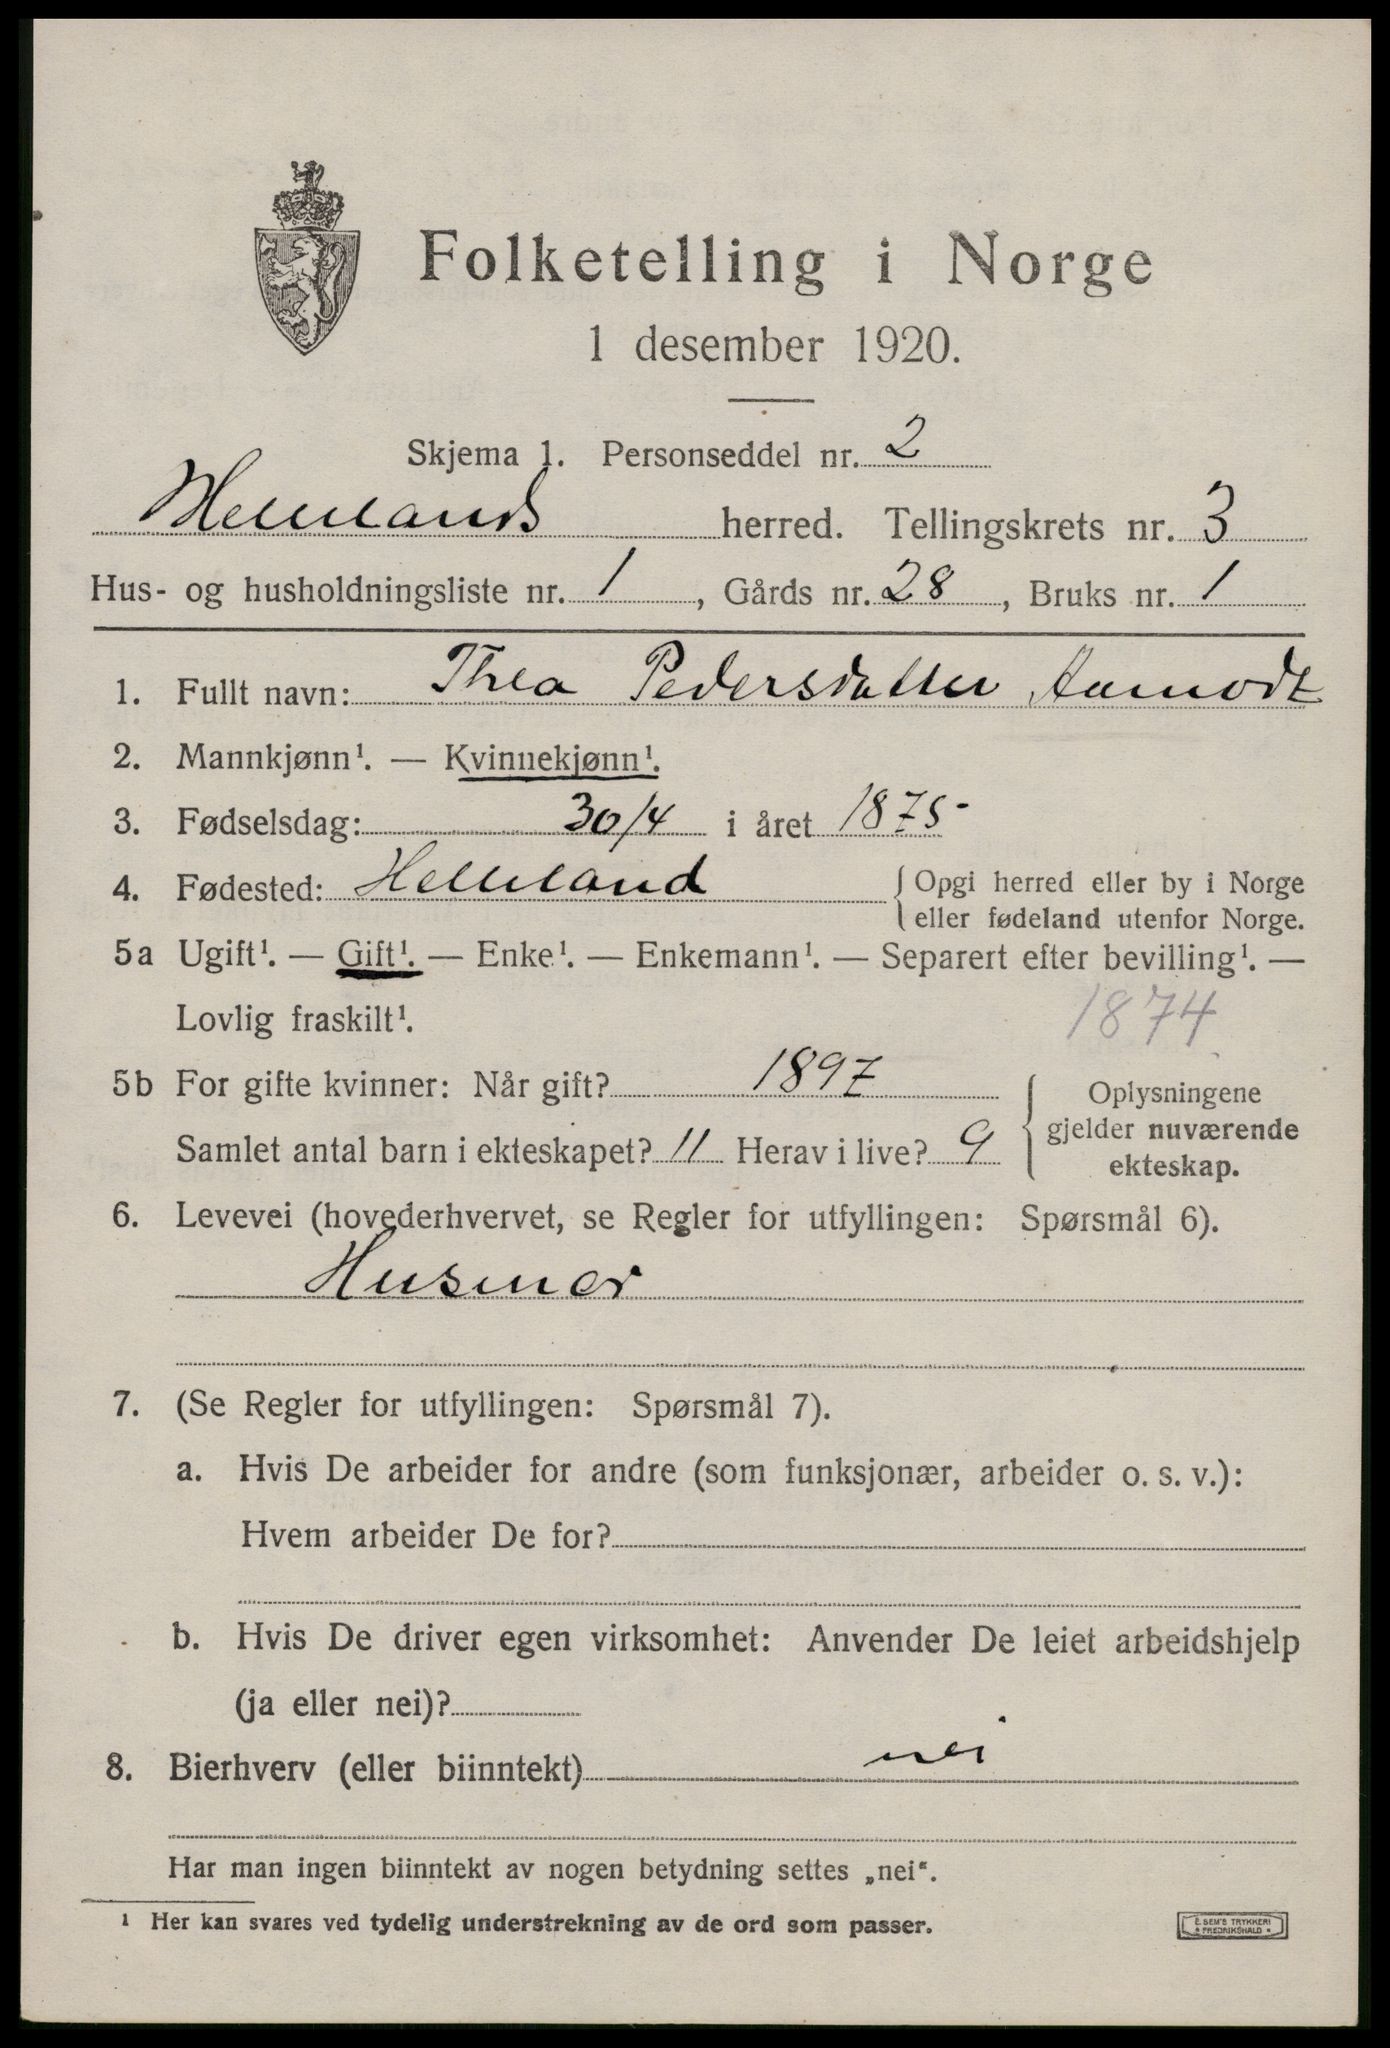 Folketelling i Norge
1 desember 1920.
Skjema 1. Personseddel nr. 2
Hellelands herred. Tellingskrets nr. 3
Hus- og husholdningsliste nr. 1, Gårds nr. 28, Bruks nr. 1
1. Fullt navn: Thea Pedersdatter Aamodt
2. Mannkjønn¹. — Kvinnekjønn¹.
3. Fødselsdag: 30/4 i året 1875-
4. Fødested: Helleland { Opgi herred eller by i Norge
eller fødeland utenfor Norge.
5a Ugift¹. — Gift¹. — Enke¹. — Enkemann¹. — Separert efter bevilling¹. —
Lovlig fraskilt¹. 1874
5b For gifte kvinner: Når gift? 1897 { Oplysningene
gjelder nuværende
ekteskap.
Samlet antal barn i ekteskapet? 11 Herav i live? 9
6. Levevei (hovederhvervet, se Regler for utfyllingen: Spørsmål 6).
Husmor
7. (Se Regler for utfyllingen: Spørsmål 7).
a. Hvis De arbeider for andre (som funksjonær, arbeider o. s. v.):
Hvem arbeider De for?
b. Hvis De driver egen virksomhet: Anvender De leiet arbeidshjelp
(ja eller nei)?
8. Bierhverv (eller biinntekt) nei
Har man ingen biinntekt av nogen betydning settes „nei“.
¹ Her kan svares ved tydelig understrekning av de ord som passer.
E. SEM'S TRYKKERI
FREDRIKSHALD